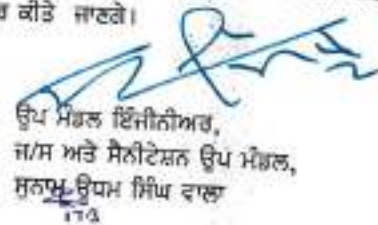 ਕੀਤੇ ਜਾਣਗੇ।
ਉਪ ਮੰਡਲ ਇੰਜੀਨੀਅਰ,
ਜ/ਸ ਅਤੇ ਸੈਨੀਟੇਸ਼ਨ ਉਪ ਮੰਡਲ,
ਸੁਨਾਮ ਊਧਮ ਸਿੰਘ ਵਾਲਾ